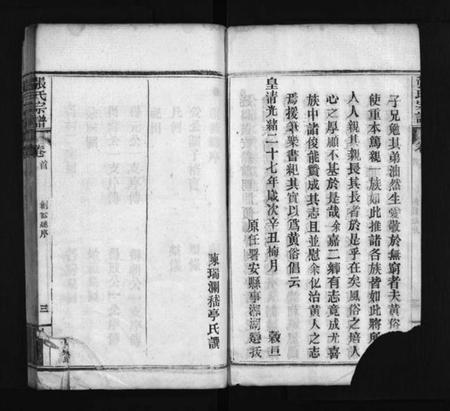 子兄勉其弟油然生愛敬於無窮者夫黃俗
使重本篤親一族如此推諸各族皆如此將見
人人親其親長其長者於是乎在矣風俗之培人
心之厚願不基於是哉余嘉二卿有志竟成尤喜
族中諸俊能贊成其志且並慰余化治黃人之志
焉援筆樂書紀其實以為黃俗倡云
皇清光緒二十七年歲次辛丑梅月 穀旦
原任署安縣事湖湘
陳瑞瀾嵇亭氏譔
張氏宗譜
卷首
創修總序
三